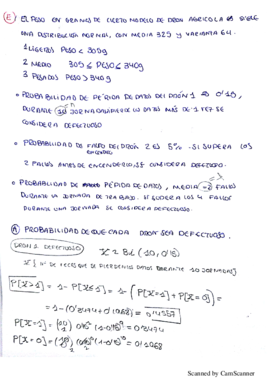 Ⓔ EL PESO EN GRAMOS DE CIERTO MODELO DE DRON AGRICOLA SIGUE
UNA DISTRIBUCIÓN NORMAL, CON MEDIA 325 Y VARIANZA 64.
1 LIGEROS PESO <
2 MEDIO 305 ≤ PESO ≤ 340g
3 PESADOS PESO > 340g
• PROBABILIDAD DE PÉRIDA DE DATOS DEL DRÓN 1 ES 0'15,
DURANTE 10 JORNADAS DATOS MÁS DE 1 VEZ SE
CONSIDERA DEFECTUOSO
• PROBABILIDAD DE DRÓN 2 ES 5%. SI SUPERA LOS
2 FALLOS ANTES DE ENCENDERLO, SE CONSIDERA DEFECTUOSO.
• PROBABILIDAD DE PÉRIDA DE DATOS, MEDIA = 2 FALLOS
DURANTE LA JORNADA DE TRABAJO. SI SUPERA LOS 4 FALLOS
DURANTE UNA JORNADA SE CONSIDERA DEFECTUOSO.
Ⓐ PROBABILIDAD DE QUE CADA DRON SEA DEFECTUOSO.
DRON 1 DEFECTUOSO X = BI (10, 0'15)
X { Nº DE VECES QUE SE PIERDEN DATOS DURANTE 10 JORNADAS }
P[X>1] = 1 - P[X≤1] = 1 - (P[X=1] + P[X=0]) =
= 1 - (0'3474 + 0'1968) =
P[X=1] = (10 1) 0'15¹ (1-0'15)⁹ = 0'3474
P[X=0] = (10 0) 0'15⁰ (1-0'15)¹⁰ = 0'1968
Scanned by CamScanner